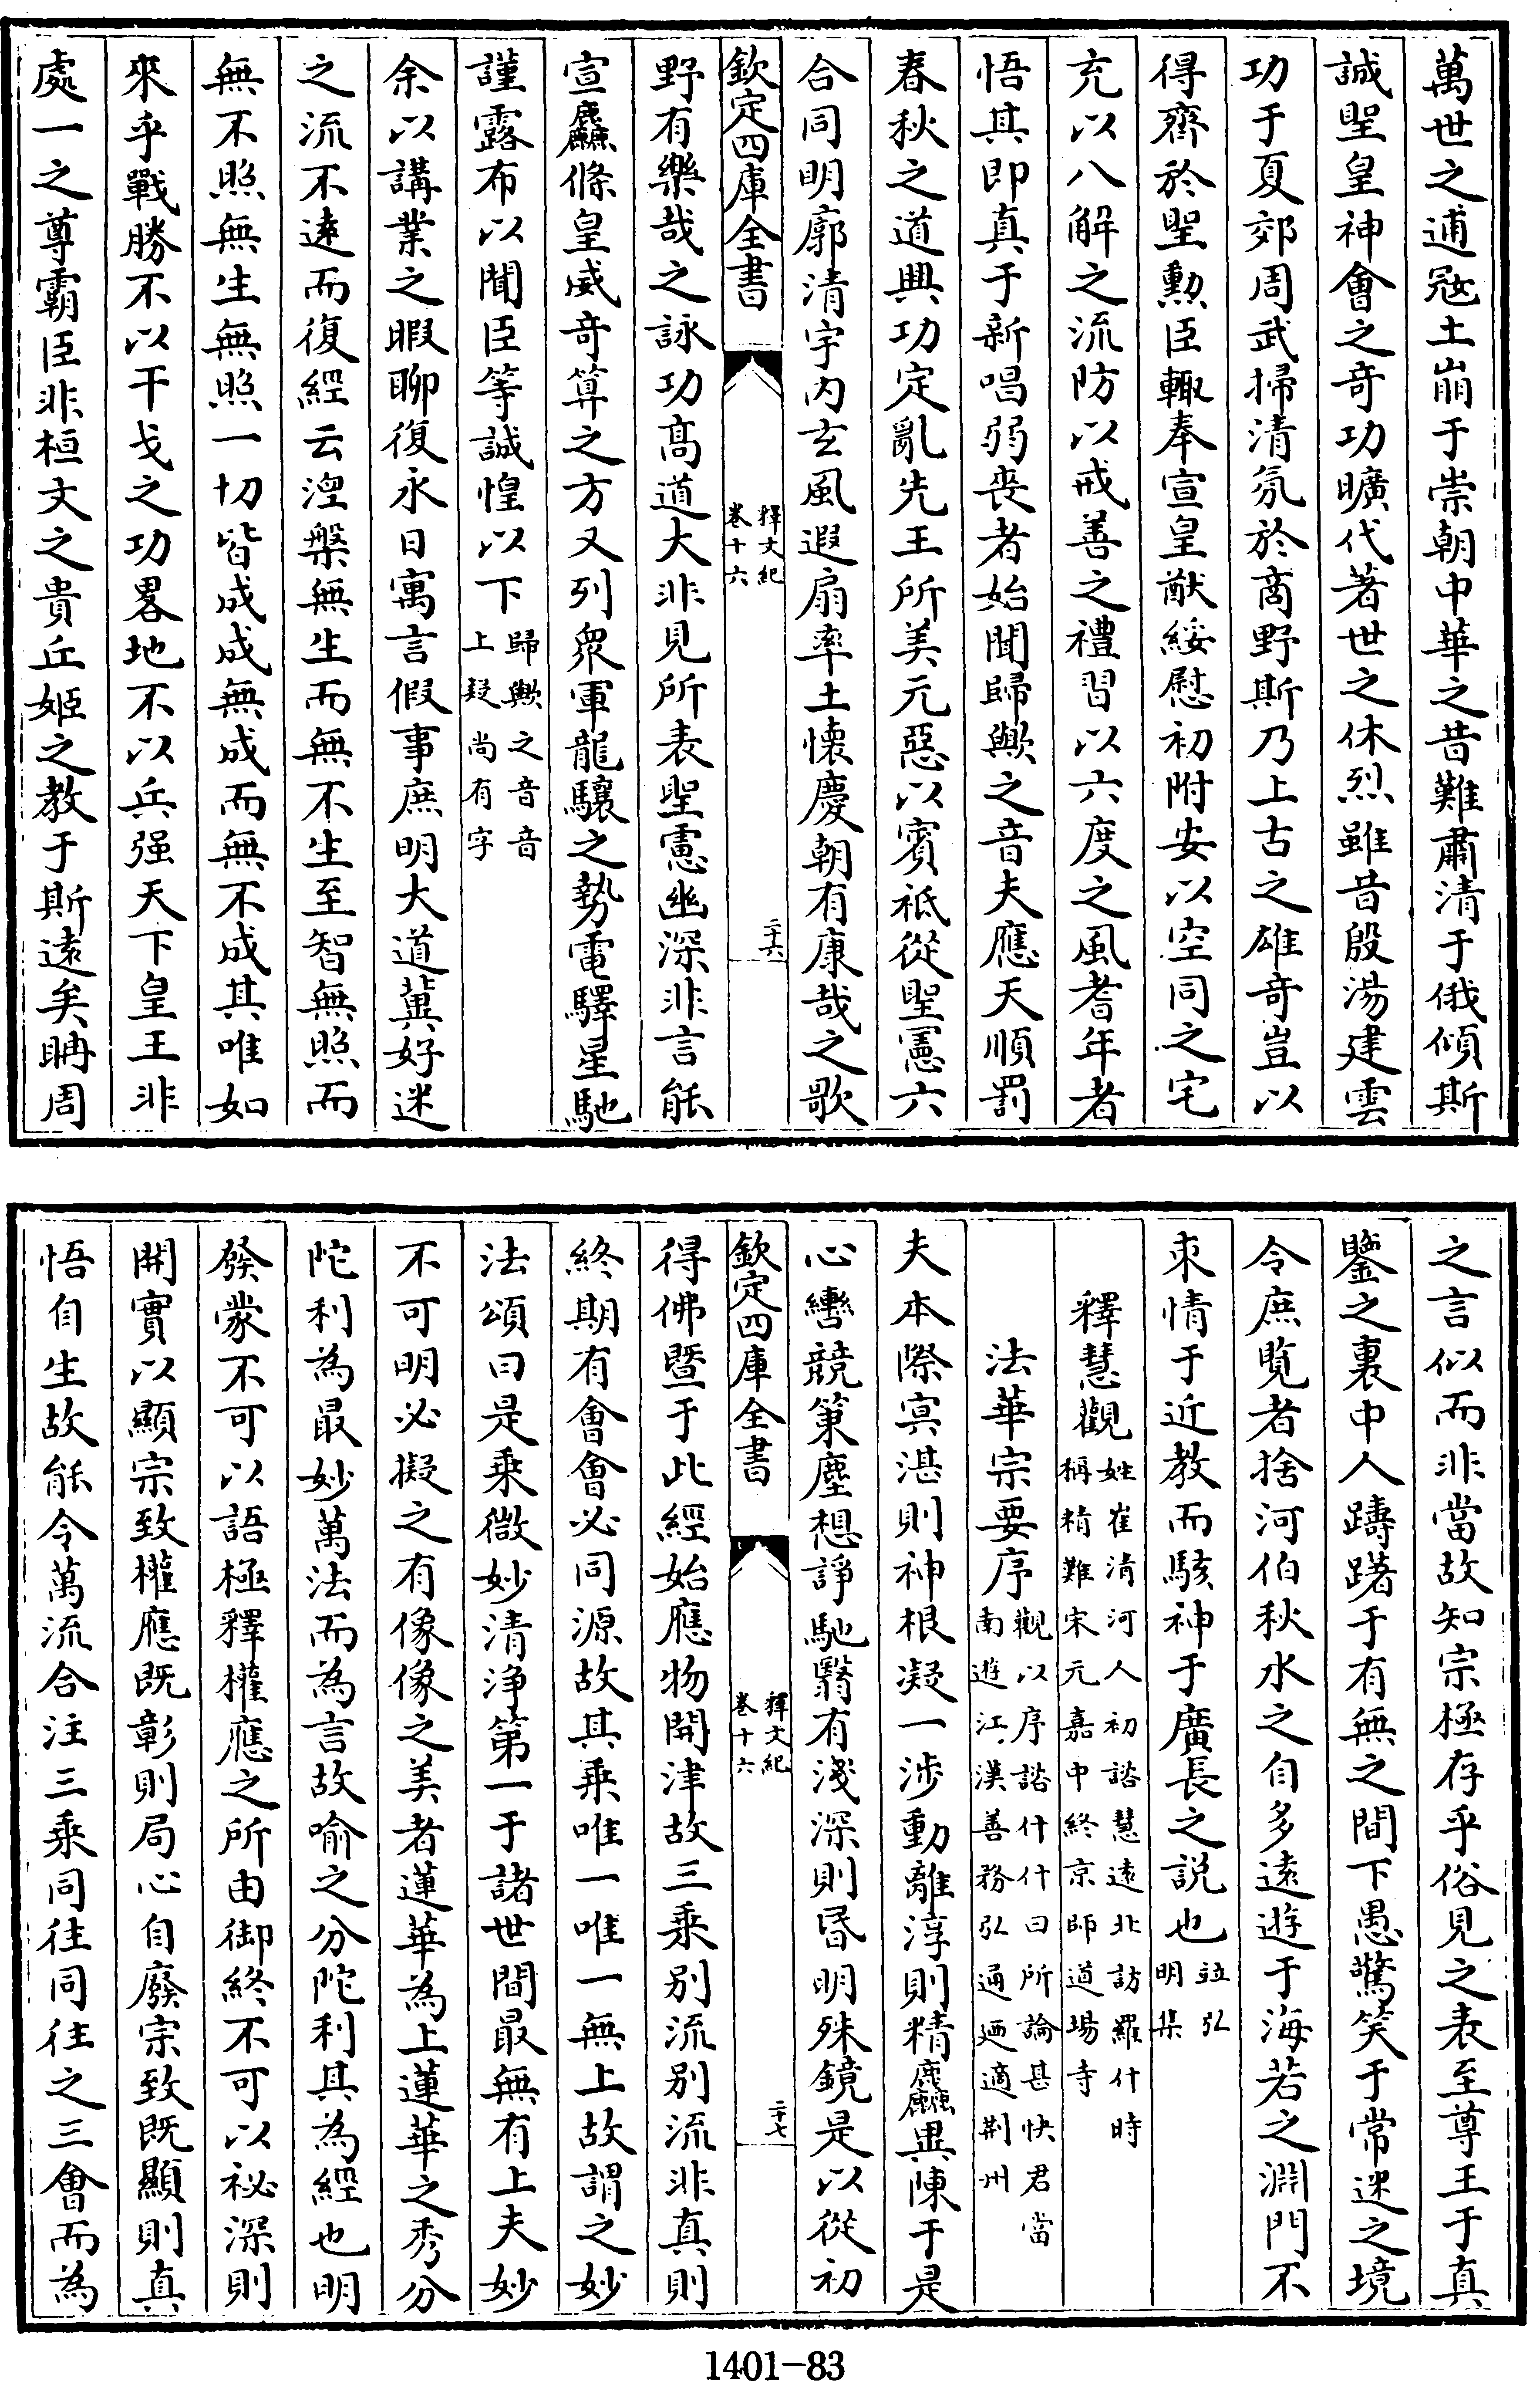 萬世之逋冦土崩于崇朝中華之昔難肅清于俄傾斯
誠聖皇神會之奇功曠代著世之休烈雖昔殷湯建雲
功于夏郊周武掃清氛於商野斯乃上古之雄奇豈以
得齊於聖勲臣輙奉宣皇猷綏慰初附安以空同之宅
充以八解之流防以戒善之禮習以六度之風耆年者
悟其即真于新唱弱喪者始聞歸歟之音夫應天順罰
春秋之道興功定亂先王所美元惡以賓祗從聖憲六
合同明廓清宇内玄風遐扇率土懐慶朝有康哉之歌
欽定四庫全書
釋文紀
卷十六
二十六
野有樂哉之詠功髙道大非見所表聖憲幽深非言能
宣麤條皇威奇算之方又列衆軍龍驤之勢電驛星馳
謹露布以聞臣等誠惶以下歸歟之音音
上疑尚有字
余以講業之暇聊復永日寓言假事庶明大道冀好迷
之流不遠而復經云涅槃無生而無不生至智無照而
無不照無生無照一切皆成成無成而無不成其唯如
來乎戰勝不以干戈之功畧地不以兵强天下皇王非
處一之尊霸臣非桓文之貴丘姬之教于斯遠矣聃周
之言似而非當故知宗極存乎俗見之表至尊王于真
鑒之裏中人躊躇于有無之間下愚驚笑于常迷之境
令庶覧者捨河伯秋水之自多遠遊于海若之淵門不
束情于近教而駭神于廣長之説也並弘
明集
釋慧觀姓崔清河人初諮慧遠北訪羅什時
稱精難宋元嘉中終京師道場寺
法華宗要序觀以序諮什什曰所論甚快君當
南遊江漢善務弘通廼適荆州
夫本際㝠湛則神根凝一涉動離淳則精麤異陳于是
心轡競策塵想諍馳翳有淺深則昬明殊鏡是以從初
欽定四庫全書
釋文紀
卷十六
二十七
得佛暨于此經始應物開津故三乘别流别流非真則
終期有會會必同源故其乘唯一唯一無上故謂之妙
法頌曰是乘微妙清浄第一于諸世間最無有上夫妙
不可明必擬之有像像之美者蓮華為上蓮華之秀分
陀利為最妙萬法而為言故喻之分陀利其為經也明
發䝉不可以語極釋權應之所由御終不可以祕深則
開實以顯宗致權應既彰則局心自廢宗致既顯則真
悟自生故能令萬流合注三乘同往同往之三會而為
1401—83